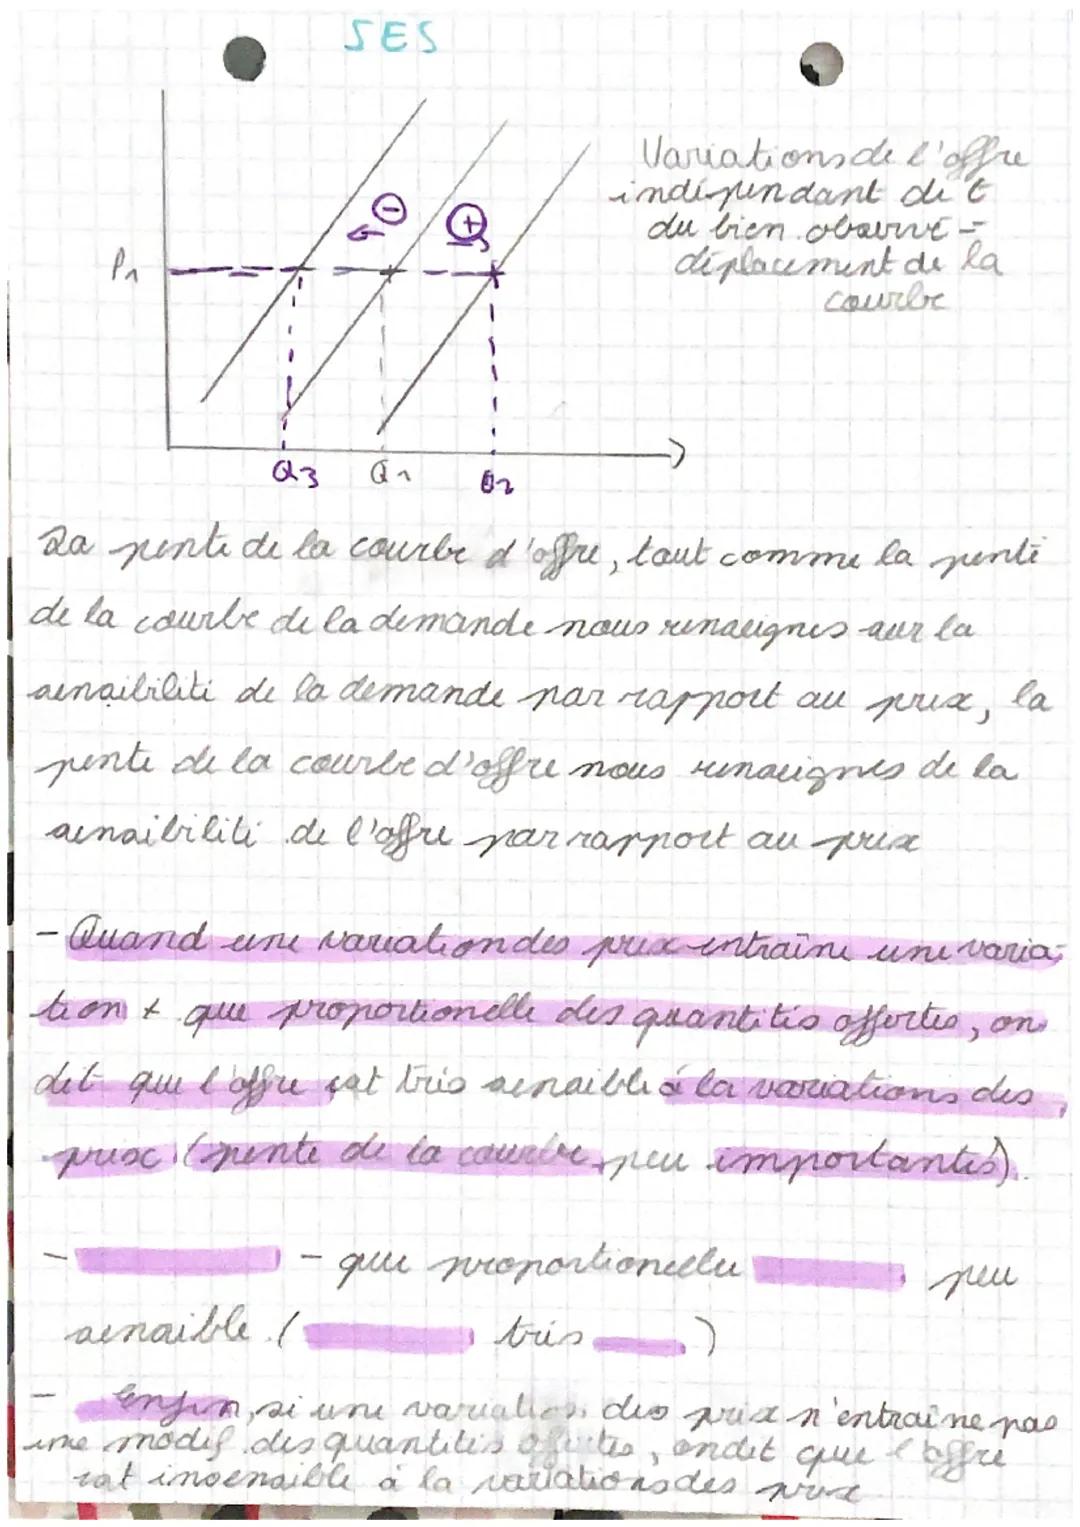 SES
Variations de l'offre
indépendant de t
du bien observé =
déplacement de la
courbe
⊖
⊕
P1
Q3 Q1 Q2
La pente de la courbe d'offre, tout comme la pente
de la courbe de la demande nous renseignes sur la
sensibilité de la demande par rapport au prix, la
pente de la courbe d'offre nous renseignes de la
sensibilité de l'offre par rapport au prix
- Quand une variation des prix entraîne une varia-
tion + que proportionelle des quantités offertes, on
dit que l'offre est très sensible à la variations des
prix (pente de la courbe peu importantes).
- - que proportionelle peu
sensible ( très )
- Enfin, si une variation des prix n'entraîne pas
une modif des quantités offertes, on dit que l'offre
est insensible à la variations des prix